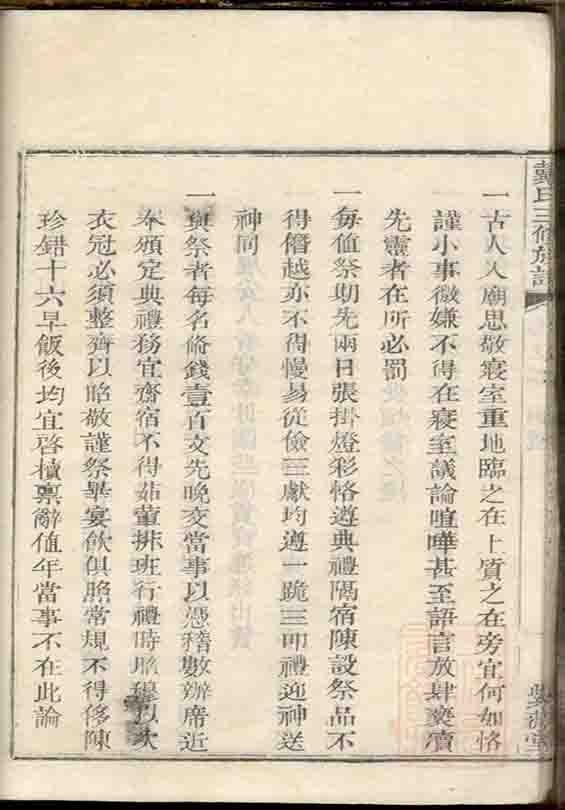 戴氏三修族譜
一古人入廟思敬寢室重地臨之在上質之在旁宜何如恪
謹小事微嫌不得在寢室議論喧嘩甚至語言放肆褻瀆
先靈者在所必罰
一每値祭期先兩日張掛燈彩恪遵典禮隔宿陳設祭品不
得僭越亦不得慢易從儉三獻均遵一跪三叩禮迎神送
神同
一與祭者每名俻錢壹百文先晚交當事以憑稽數辦席近
奉頒定典禮務宜齋宿不得茹葷排班行禮時照穆以次
衣冠必須整齊以昭敬謹祭畢宴飲俱照常規不得侈陳
珍錯十六早飯後均宜啓櫝禀辭値年當事不在此論